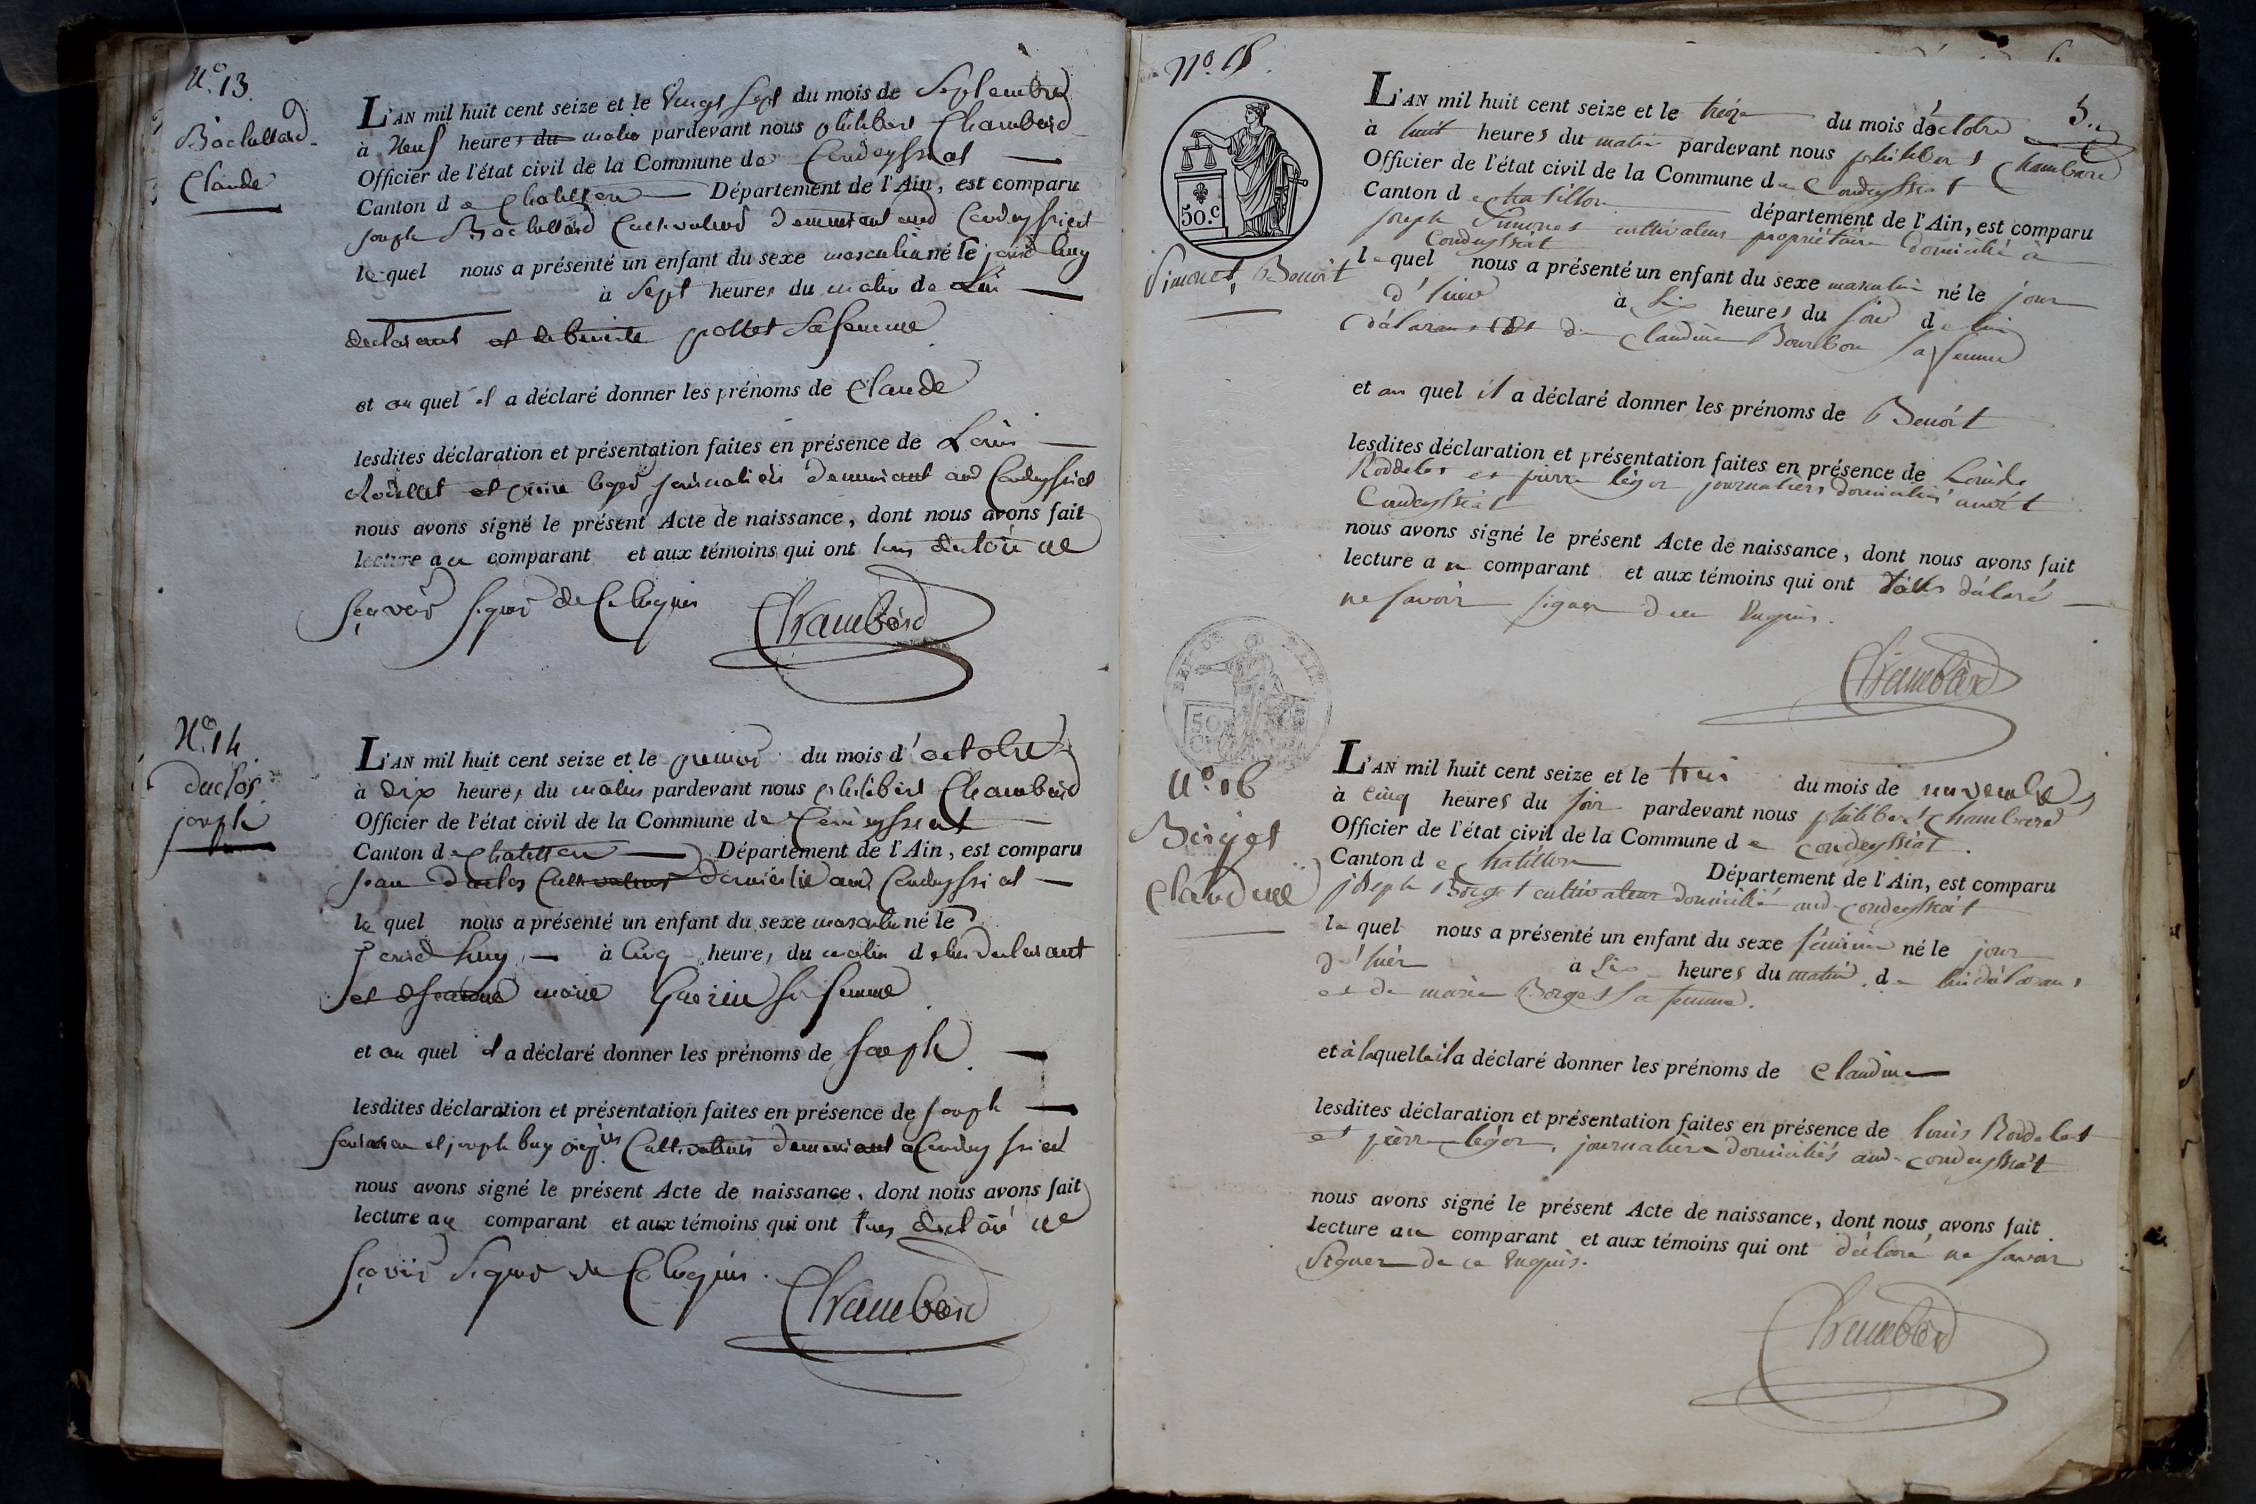 N.º 13.
Bachellard
Claude
L'AN mil huit cent seize et le Vingt Sept du mois de Septembre
à Neuf heures du matin pardevant nous philibert Chambard
Officier de l'état civil de la Commune de Condeyssiat
Canton de Chatillon Département de l'Ain, est comparu
joseph Bachellard Cultivateur demeurant aud Condeyssiat
lequel nous a présenté un enfant du sexe masculin né le jourd'huy
à Sept heures du matin de Lui
declarant et de benoite pollet Sa femme
et au quel il a déclaré donner les prénoms de Claude
lesdites déclaration et présentation faites en présence de Louis
et pierre leger journaliers demeurant aud Condeyssiat
nous avons signé le présent Acte de naissance, dont nous avons fait
lecture au comparant et aux témoins qui ont tous declaré ne
sçavoir signer de Ce Requis
Chambard
N.º 14.
duclos
joseph
L'AN mil huit cent seize et le premier du mois d'octobre
à dix heures du matin pardevant nous philibert Chambard
Officier de l'état civil de la Commune de Condeyssiat
Canton de Chatillon Département de l'Ain, est comparu
jean duclos Cultivateur domicilié aud Condeyssiat
le quel nous a présenté un enfant du sexe masculin né le
jourd'huy à Cinq heures du matin de lui declarant
et de jeanne marie Guerin Sa femme
et au quel il a déclaré donner les prénoms de joseph
lesdites déclaration et présentation faites en présence de joseph
et joseph buy Cultivateurs demeurant a Condeyssiat
nous avons signé le présent Acte de naissance, dont nous avons fait
lecture au comparant et aux témoins qui ont tous declaré ne
sçavoir signer de Ce Requis.
Chambard
Nº. 15.
5.
50.c
Simonet, Benoit
L'AN mil huit cent seize et le treize du mois d'octobre
à huit heures du matin pardevant nous philibert Chambard
Officier de l'état civil de la Commune de Condeyssiat
Canton de Chatillon département de l'Ain, est comparu
joseph Simonet cultivateur propriétaire domicilié à
Condeyssiat
lequel nous a présenté un enfant du sexe masculin né le jour
d'hier à Six heures du soir de lui
déclarant et de Claudine Bourbon sa femme
et au quel il a déclaré donner les prénoms de Benoit
lesdites déclaration et présentation faites en présence de Louis
Roddelet et pierre léger journaliers domiciliés audit
Condeyssiat
nous avons signé le présent Acte de naissance, dont nous avons fait
lecture au comparant et aux témoins qui ont déclaré
ne savoir signer de ce Requis.
Chambard
50
Nº. 16
Borjet
Claudine
L'AN mil huit cent seize et le trois du mois de novembre
à cinq heures du soir pardevant nous philibert Chambard
Officier de l'état civil de la Commune de Condeyssiat.
Canton de Chatillon Département de l'Ain, est comparu
joseph Borget cultivateur domicilié aud Condeyssiat
le quel nous a présenté un enfant du sexe féminin né le jour
d'hier à Six heures du matin de lui déclarant
et de marie Borget sa femme.
et à laquelle il a déclaré donner les prénoms de Claudine
lesdites déclaration et présentation faites en présence de louis Roddelet
et pierre léger, journaliers domiciliés aud Condeyssiat
nous avons signé le présent Acte de naissance, dont nous avons fait
lecture au comparant et aux témoins qui ont déclaré ne savoir
Signer de ce Requis.
Chambard